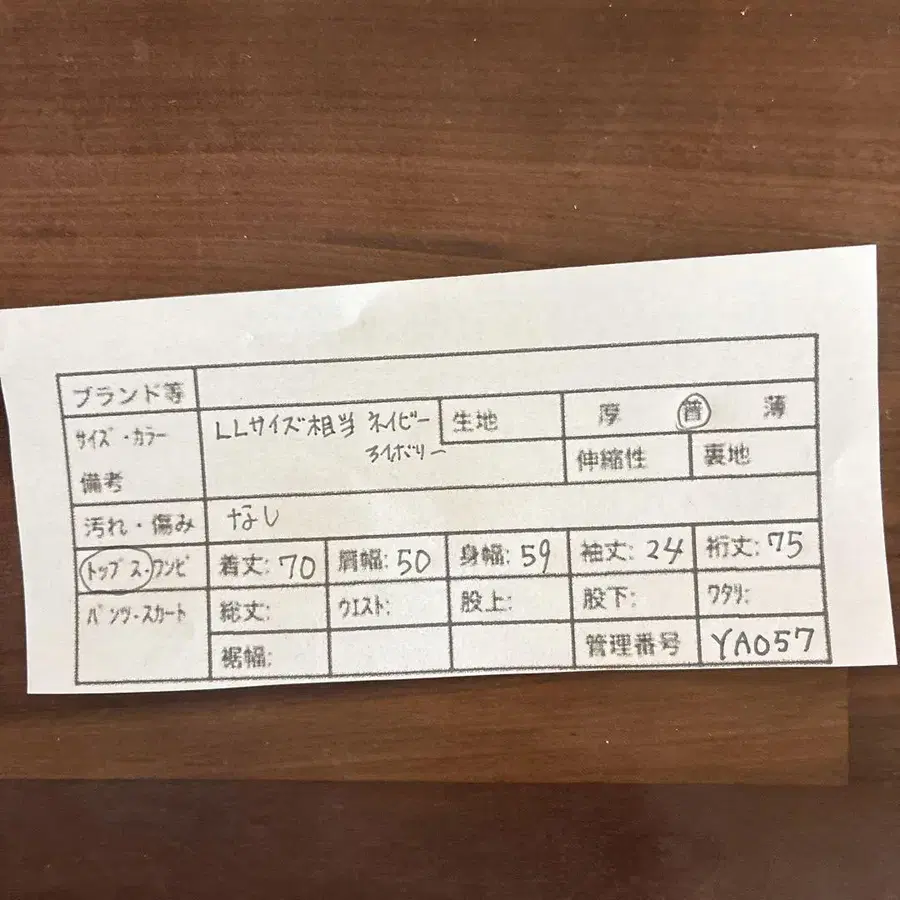 ブランド等
サイズ・カラー LLサイズ相当 ネイビー 生地 厚 普 薄
アイボリー 伸縮性 裏地
備考
汚れ・傷み なし
トップス・ワンピ 着丈: 70 肩幅: 50 身幅: 59 袖丈: 24 裄丈: 75
パンツ・スカート 総丈: ウエスト: 股上: 股下: ワタリ:
裾幅: 管理番号 YA057